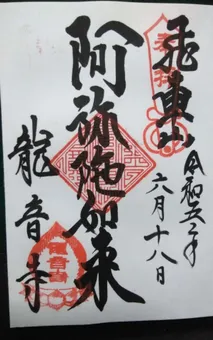 奉拝
飛車山
令和五年
六月十八日
阿弥陀如来
龍音寺